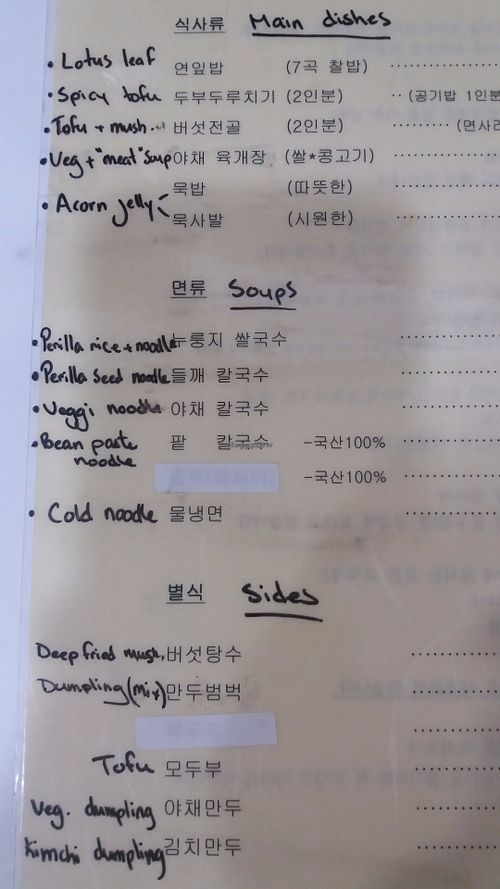 식사류 Main dishes
• Lotus leaf 연잎밥 (7곡 찰밥)
• Spicy tofu 두부두루치기 (2인분) (공기밥 1인분
• Tofu + mush... 버섯전골 (2인분) (면사리
• Veg + "meat" soup 야채 육개장 (쌀*콩고기)
묵밥 (따뜻한)
• Acorn jelly
묵사발 (시원한)
면류 Soups
• Perilla rice + noodle 누룽지 쌀국수
• Perilla seed noodle 들깨 칼국수
• Veggi noodle 야채 칼국수
• Bean paste 팥 칼국수 -국산100%
noodle
-국산100%
• Cold noodle 물냉면
별식 Sides
Deep fried mush. 버섯탕수
Dumpling (mix) 만두범벅
Tofu 모두부
Veg. dumpling 야채만두
Kimchi dumpling 김치만두